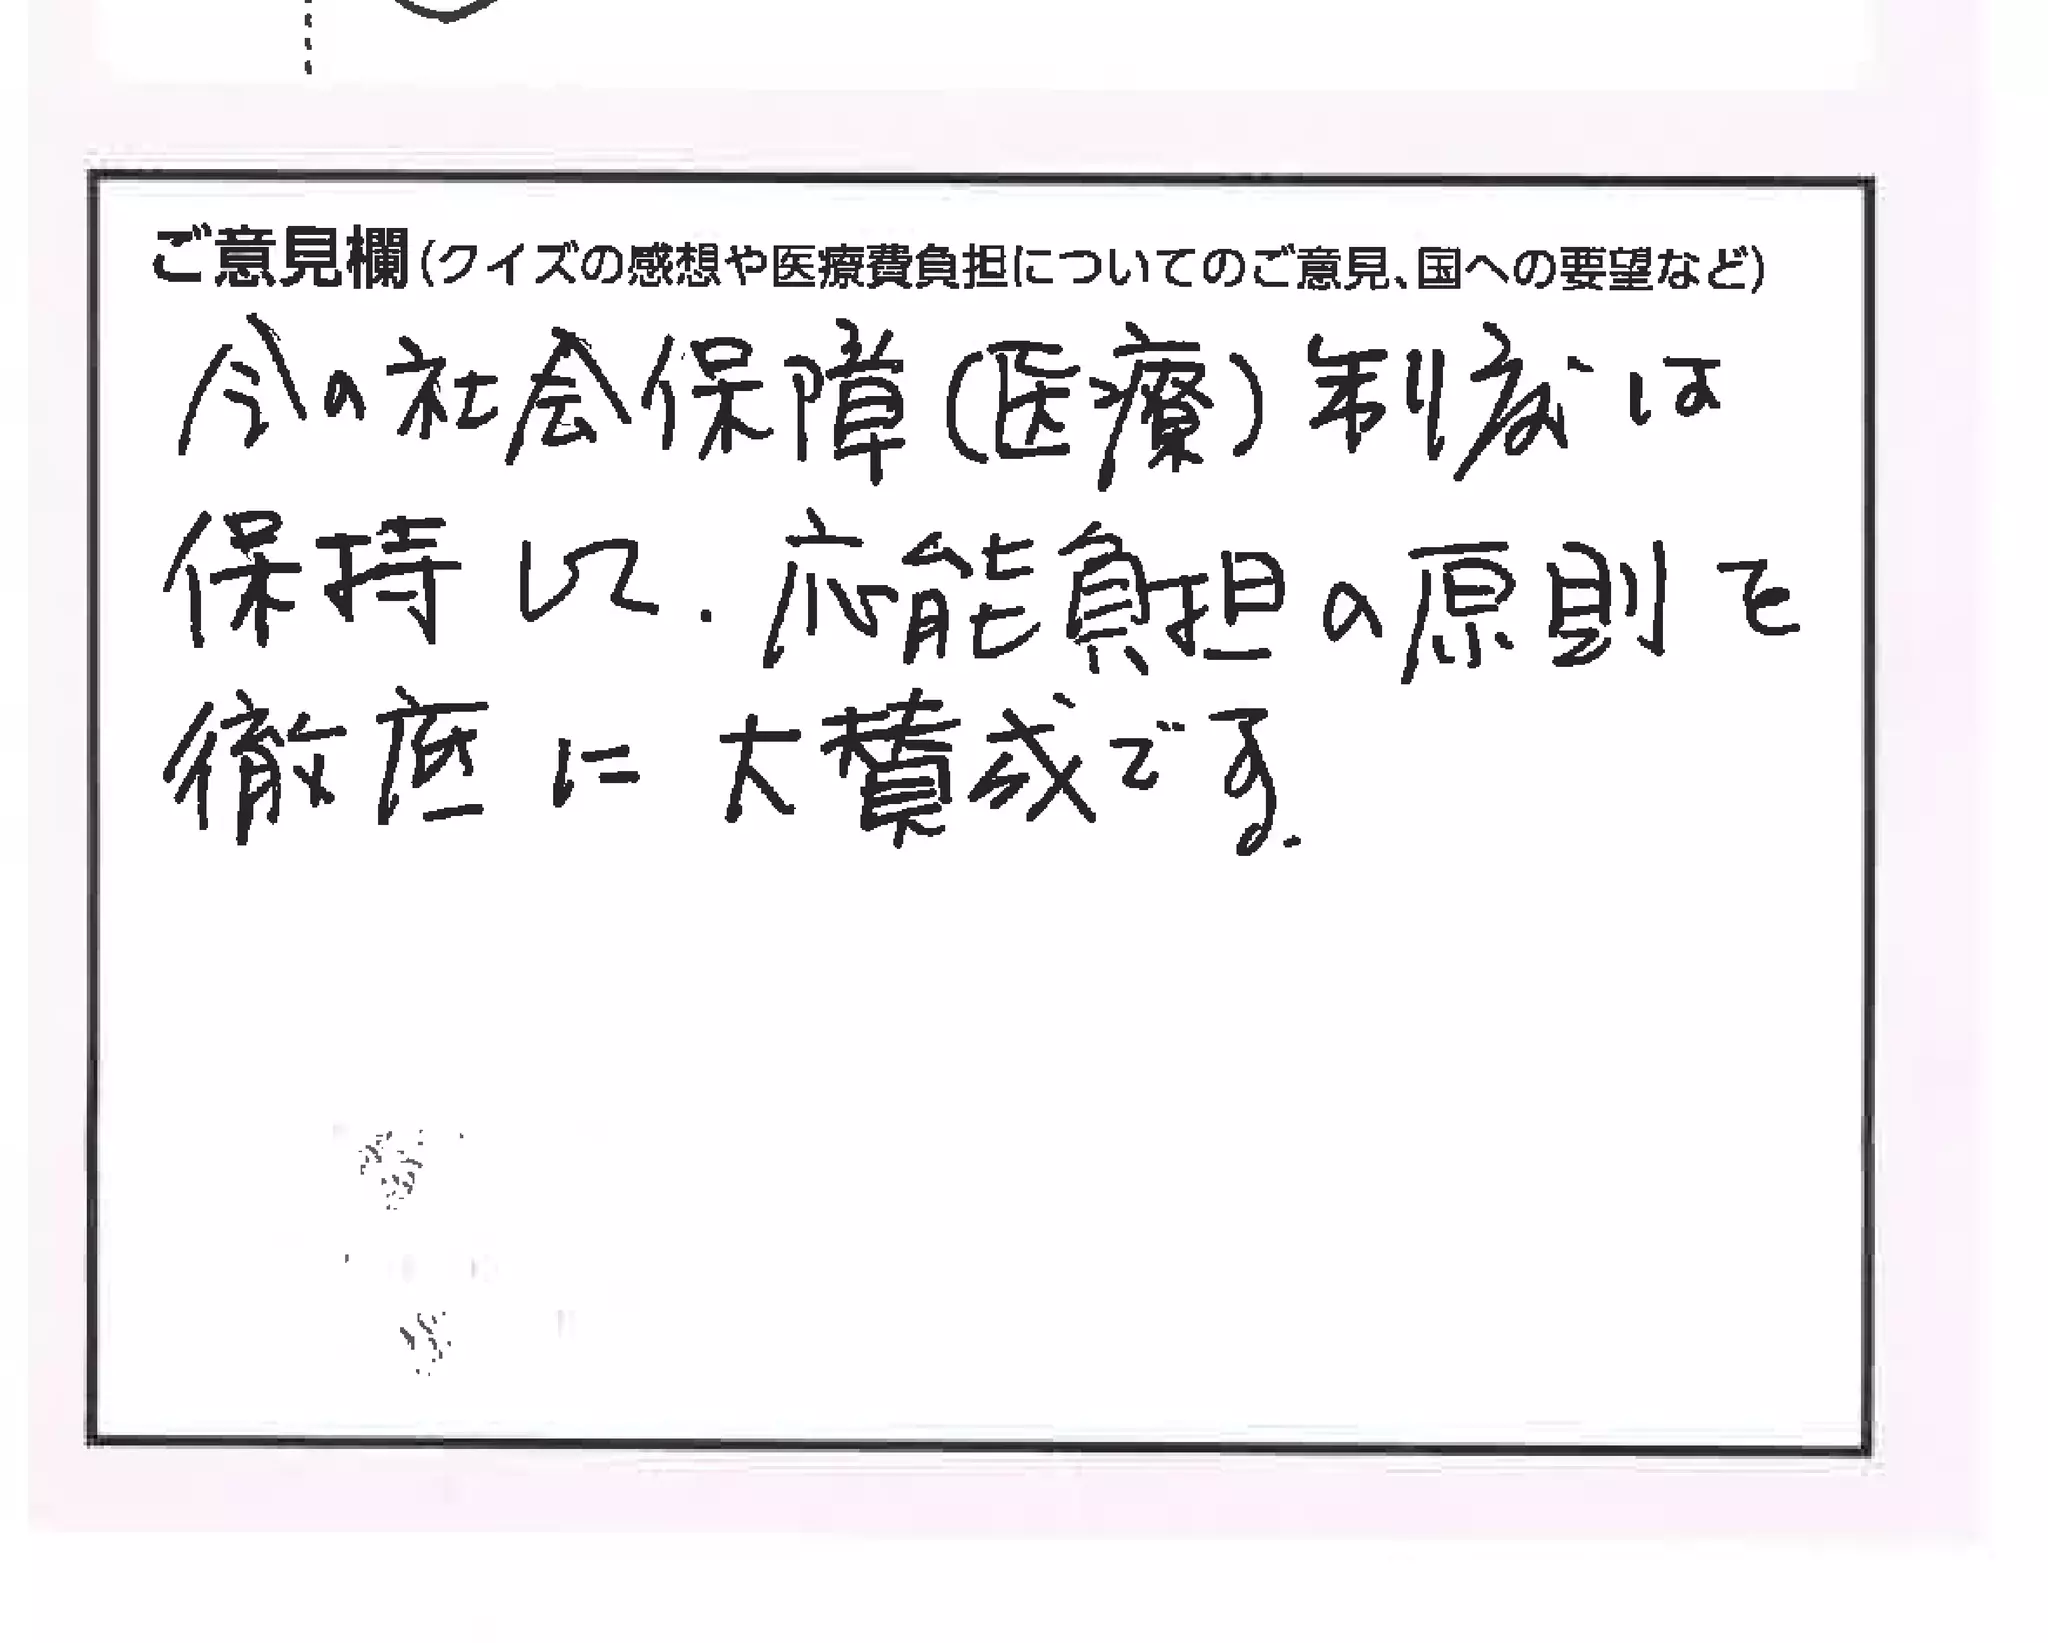 ご意見欄(クイズの感想や医療費負担についてのご意見、国への要望など)
今の社会保障(医療)制度は
保持して、応能負担の原則を
徹底に大賛成です。